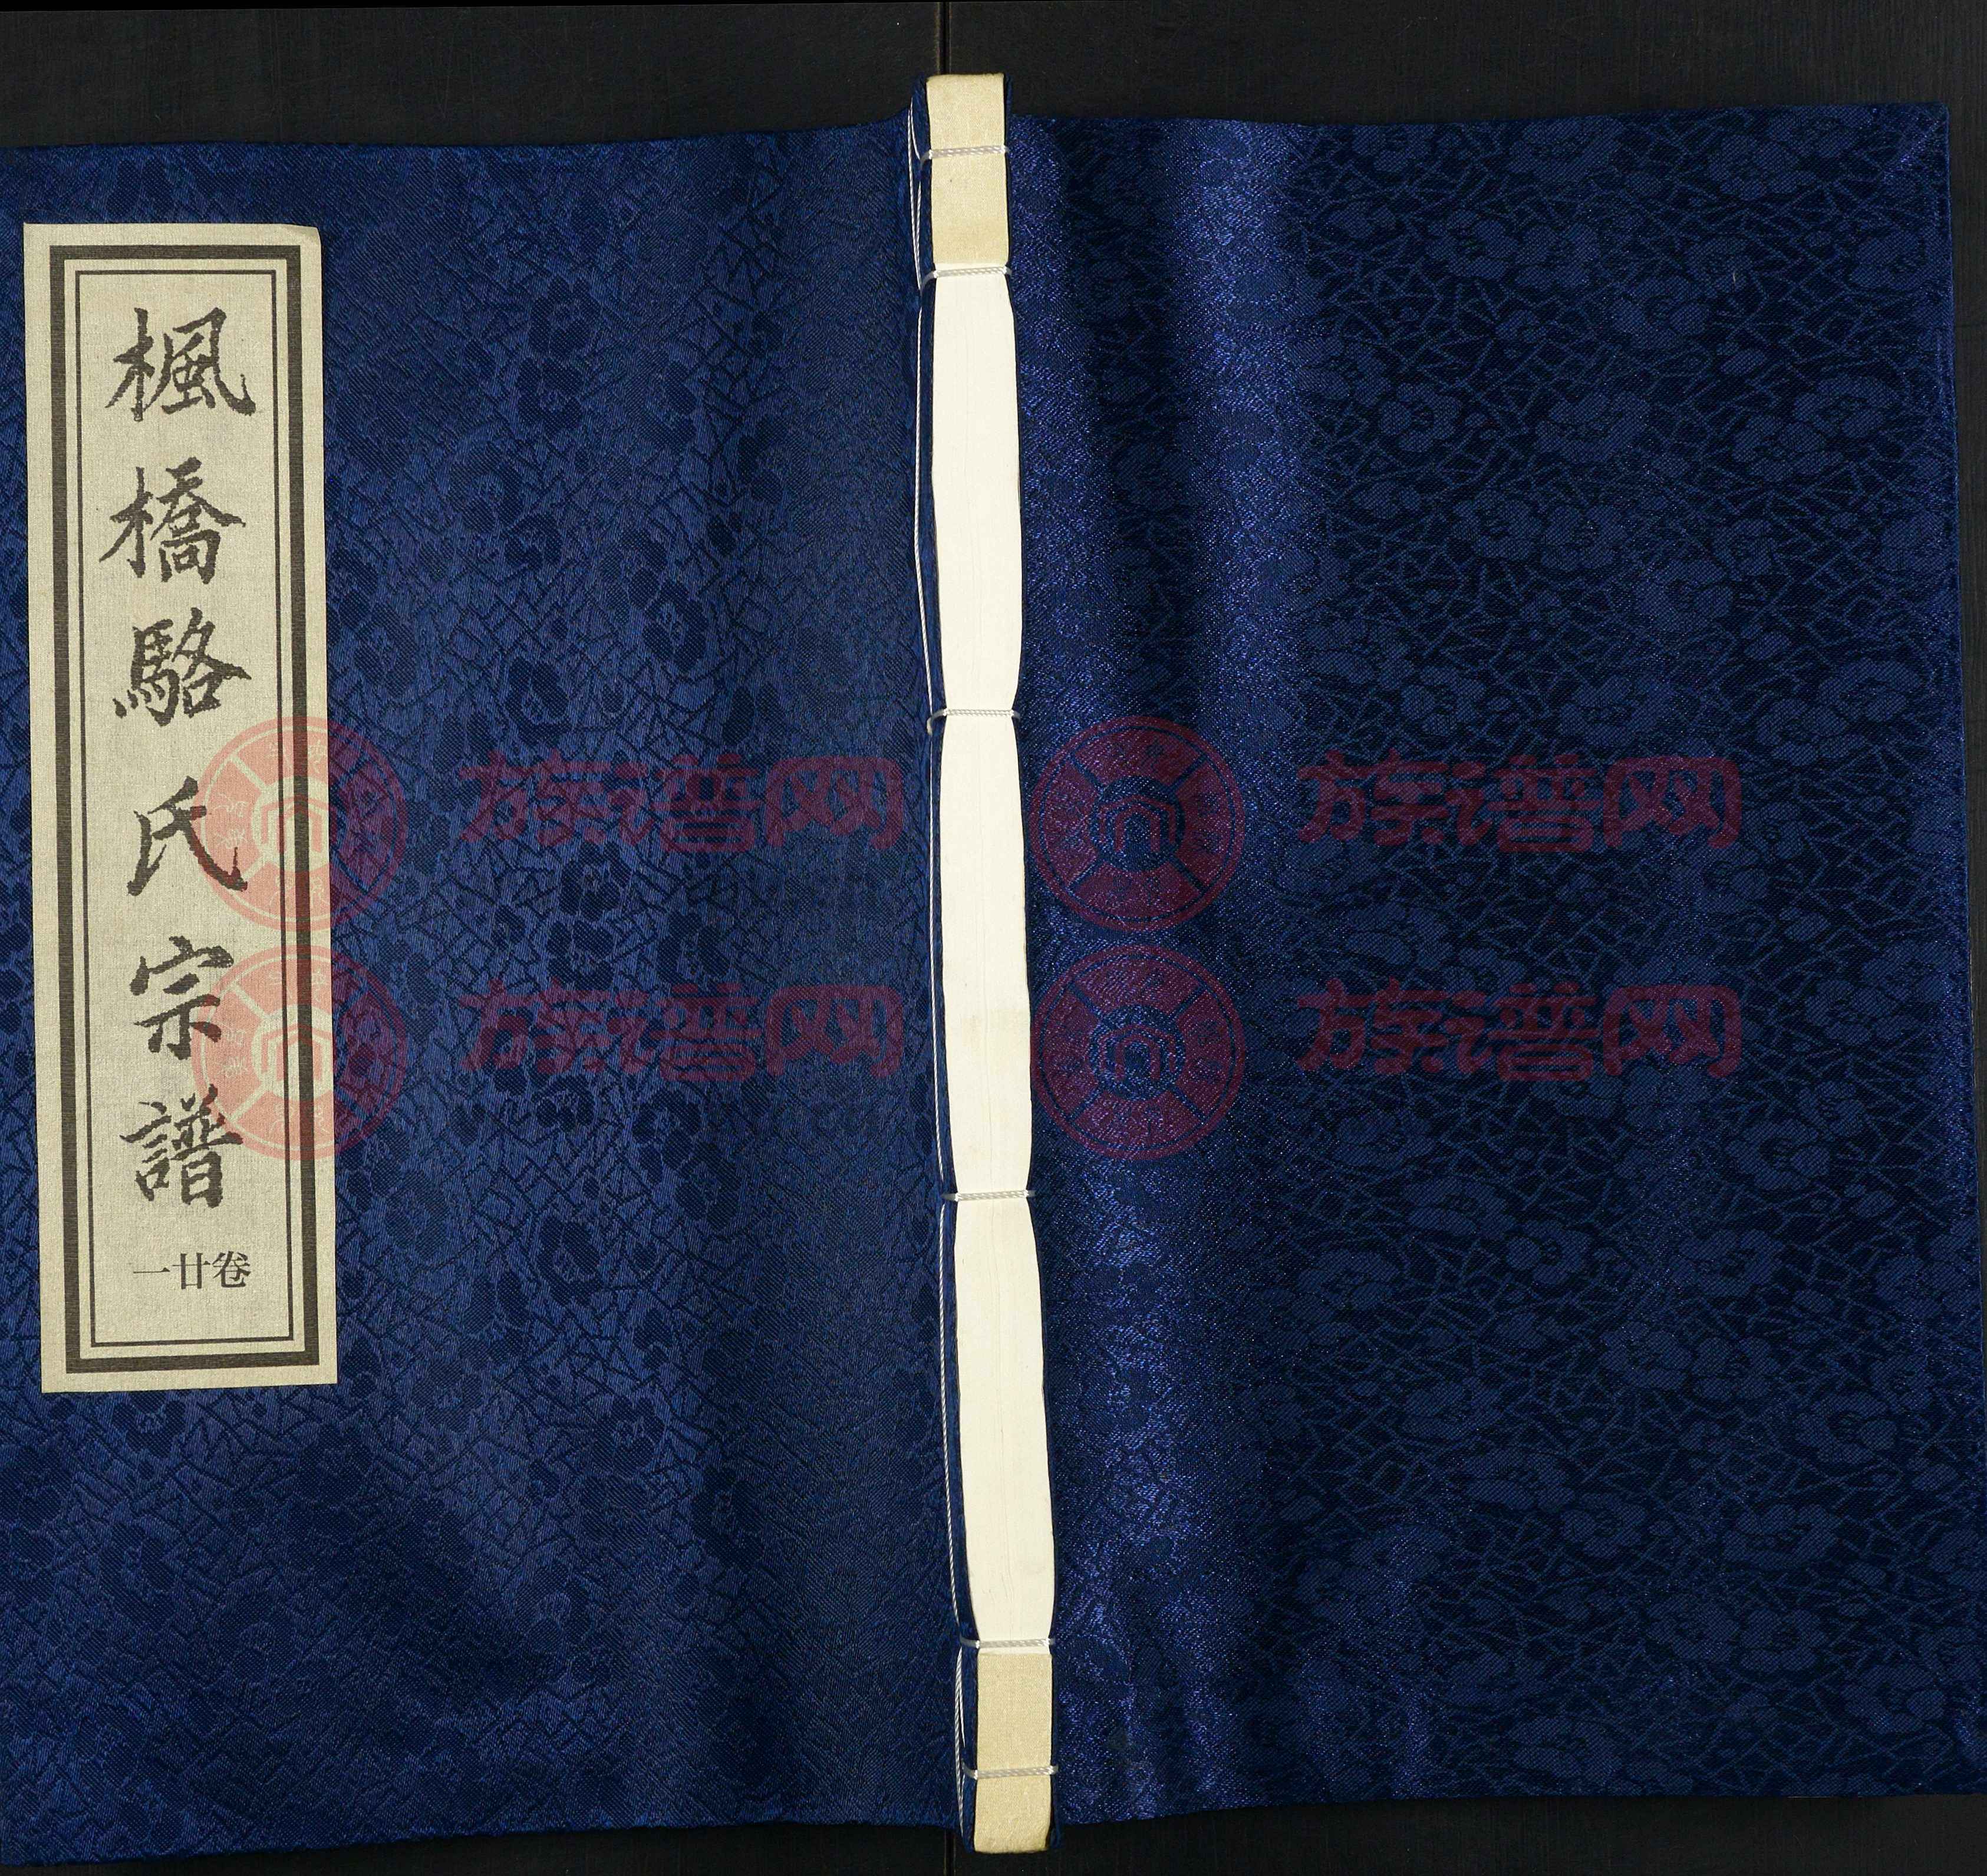 楓橋駱氏宗譜
卷廿一
族谱网
族谱网
族谱网
族谱网